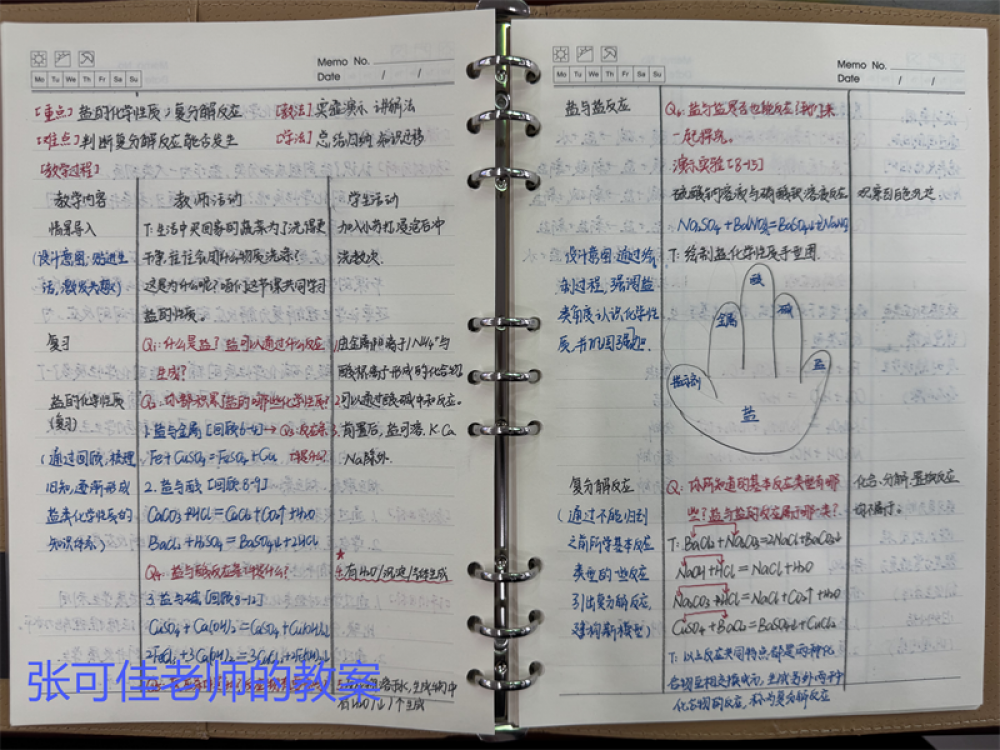 Memo No.
Date / /
Mo Tu We Th Fr Sa Su
[重点] 盐的化学性质,复分解反应 [教法] 实验演示 讲解法
[难点] 判断复分解反应能否发生 [学法] 总结归纳 知识迁移
[教学过程]
教学内容 教师活动 学生活动
情景导入 T:生活中买回家的蔬菜为了洗得更 加入小苏打浸泡后冲
(设计意图:贴近生 干净,往往会用什么物质洗涤? 洗数次.
活,激发兴趣) 这是为什么呢?咱们这节课共同学习
盐的性质。
复习 Q1:什么是盐?盐可以通过什么反应 1.由金属阳离子/NH4+与
生成? 酸根离子形成的化合物
盐的化学性质 Q2:你都积累了盐的哪些化学性质? 2.可以通过酸碱中和反应。
(复习) 1.盐与金属[回顾6-4]→Q3:反应条 3.前置后,盐可溶,K Ca
(通过回顾,梳理 Fe+CuSO4=FeSO4+Cu 件是什么? Na除外.
旧知,逐渐形成 2.盐与酸[回顾8-9]
盐类化学性质的 CaCO3+HCl=CaCl2+CO2↑+H2O
知识体系) BaCl2+H2SO4=BaSO4↓+2HCl
Q4:盐与酸反应条件是什么? 4.有H2O/沉淀/气体生成
3.盐与碱[回顾8-12]
CuSO4+Ca(OH)2=CaSO4+Cu(OH)2↓
2FeCl3+3Ca(OH)2=3CaCl2+2Fe(OH)3↓
张可佳老师的教案
有H2O/↓/↑生成
Memo No.
Date / /
Mo Tu We Th Fr Sa Su
盐与盐反应 Q6:盐与盐是否也能反应?我们来
一起探究。
演示实验[8-13]
硫酸钠溶液与硝酸钡溶液反应 观察到白色沉淀
Na2SO4+Ba(NO3)2=BaSO4↓+2NaNO3
设计意图:通过绘 T:绘制盐化学性质手型图.
制过程,强调盐
类角度认识化学性
质,书的巩固
酸
金属
碱
盐
指示剂
盐
复分解反应 Q:你所知道的基本反应类型有哪 化合、分解、置换反应
些?盐与盐的反应属于哪一类? 均不属于。
(通过不能归到 T:BaCl2+Na2CO3=2NaCl+BaCO3↓
之前所学基本反应
类型的一些反应 NaOH+HCl=NaCl+H2O
引出复分解反应, Na2CO3+HCl=NaCl+CO2↑+H2O
建构新模型) CuSO4+BaCl2=BaSO4↓+CuCl2
T:以上反应共同特点都是两种化
合物互相交换成分,生成另外两种
化合物的反应,称为复分解反应